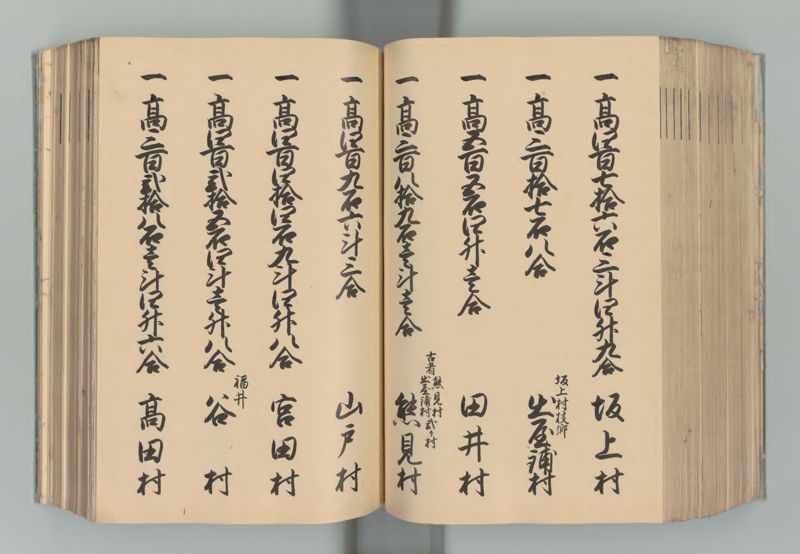 一 高四百七拾六石三斗四升九合 坂上村
坂上村枝郷
一 高三百拾七石八合 土屋鋪村
一 高五百五石四升壱合 田井村
古者熊見村土屋鋪村弐ヶ村
一 高三百八拾九石壱斗壱合 熊見村
一 高四百九石六斗三合 山戸村
一 高四百四拾四石九斗四升八合 宮田村
福井
一 高四百弐拾五石四斗壱升八合 谷村
一 高三百弐拾八石壱斗四升六合 高田村